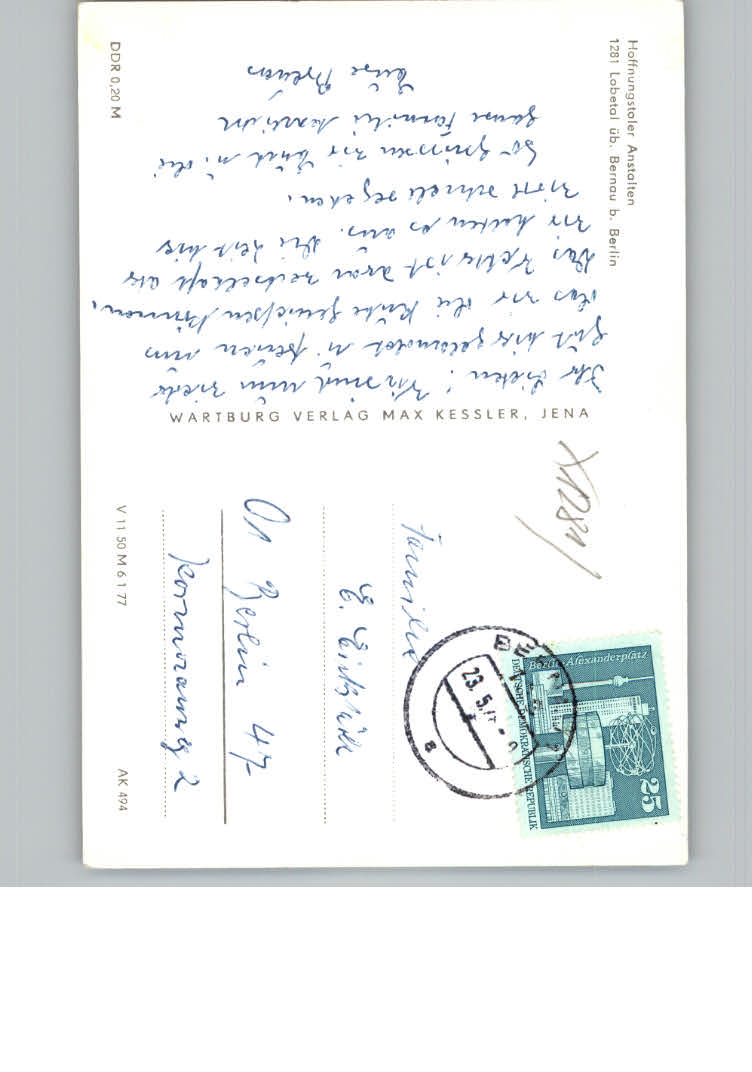 Hoffnungstaler Anstalten
1281 Lobetal üb. Bernau b. Berlin
Ihr Lieben! Wir sind nun wieder
gut hier gelandet u. freuen uns
das wir die Ruhe genießen können.
Das Wetter ist zwar wechselhaft aber
wir halten es aus. Die Zeit hier
wird schnell vergehen.
So grüssen wir Euch u. die
ganze Familie herzlich
Eure
DDR 0,20 M
WARTBURG VERLAG MAX KESSLER, JENA
V 11 50 M 6 1 77
AK 494
X1281
Berlin, Alexanderplatz
DEUTSCHE DEMOKRATISCHE REPUBLIK
25
BERLIN
23.5.77
a
Familie
E.
O1 Berlin 47
Kormoranweg 2